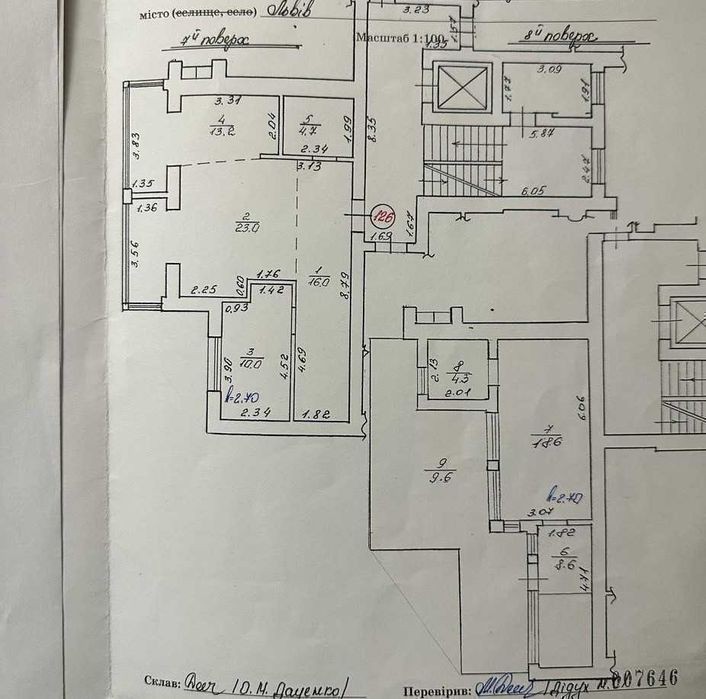 місто (селище, село) Львів
7й поверх
Масштаб 1:100
8й поверх
3.23
1.57
1.35
3.09
1.77
1.91
3.31
4
13.2
2.04
5
4.7
1.99
8.35
5.87
3.83
2.34
3.13
2.47
1.35
6.05
1.36
126
2
23.0
1.69
1.67
3.56
1.76
1
16.0
8.79
2.25
0.60
1.42
0.93
3
10.0
3.90
4.52
4.69
h=2.70
2.34
1.82
2.13
8
4.3
2.01
6.06
7
18.6
9
9.6
h=2.70
3.07
1.82
6
8.6
4.71
Склав: /О.М. Даценко/
Перевірив:
007646